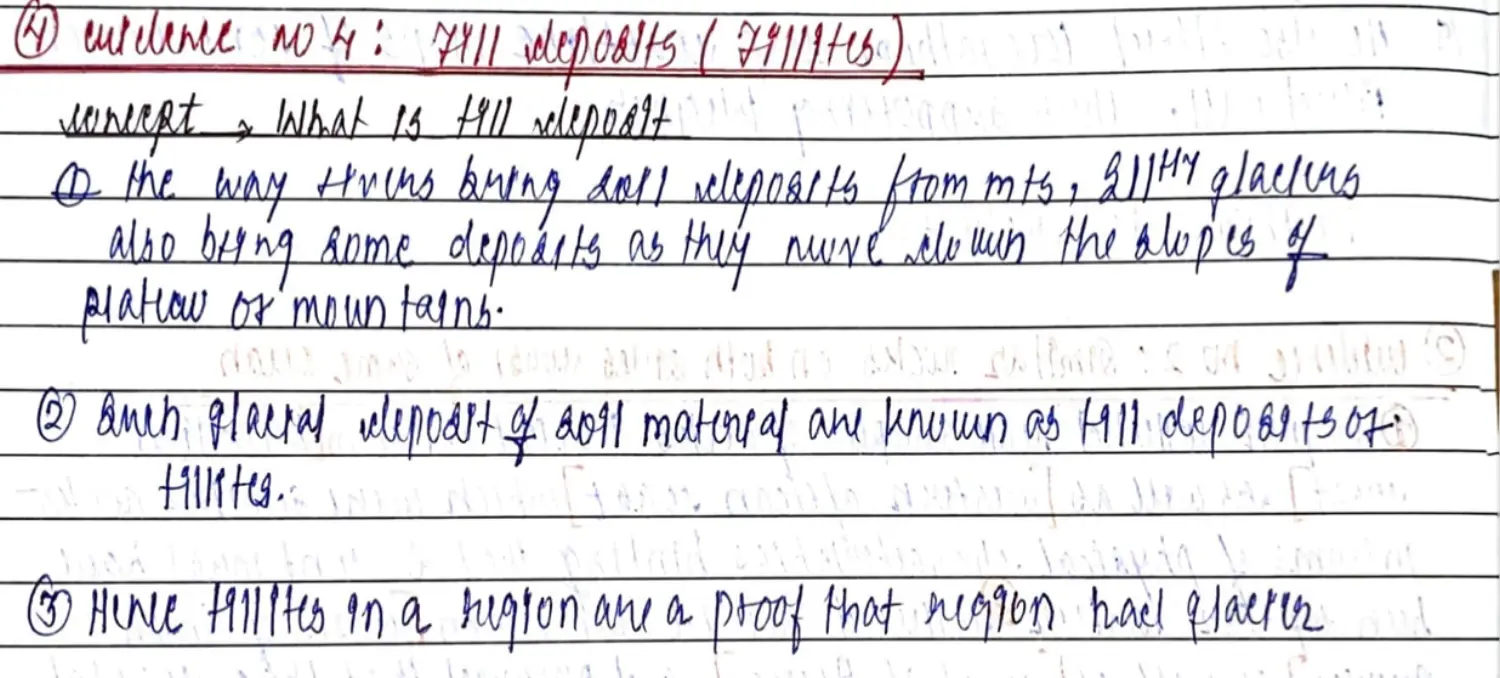 ④ evidence no 4: Till deposits (Tillites)
concept → What is till deposit
① the way rivers bring soil deposits from mts, silly glaciers
also bring some deposits as they move down the slopes of
plateau or mountains.
② such glacial deposit of soil material are known as till deposits or
tillites.
③ Hence tillites in a region are a proof that region had glacier